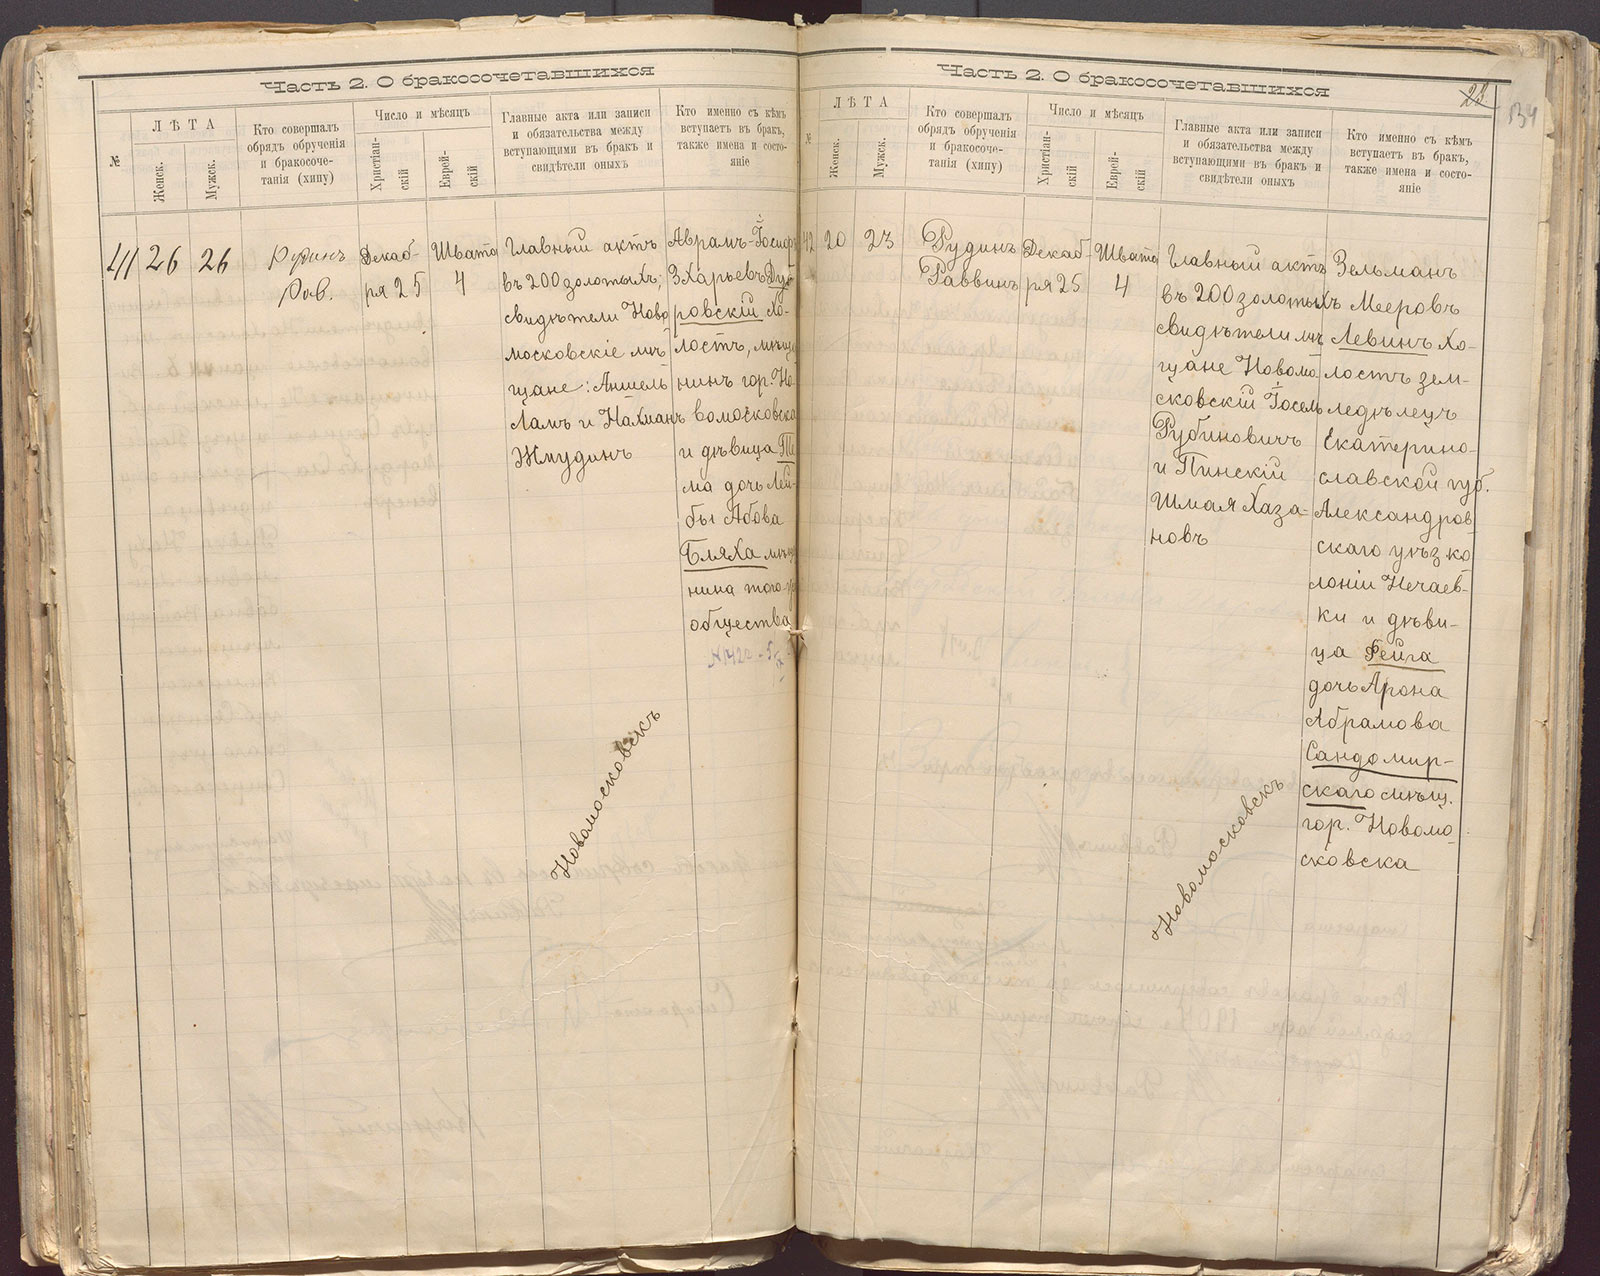 Часть 2. О бракосочетавшихся
№
ЛѢТА
Женск.
Мужск.
Кто совершалъ
обрядъ обрученія
и бракосоче-
танія (хипу)
Число и мѣсяцъ
Христіан-
скій
Еврей-
скій
Главные акта или записи
и обязательства между
вступающими въ бракъ и
свидѣтели оныхъ
Кто именно съ кѣмъ
вступаетъ въ бракъ,
также имена и состо-
яніе
41
26
26
Рудинъ
Рав.
Декаб-
ря 25
Швата
4
Главный актъ
въ 200 золотыхъ;
свидѣтели Ново
московскіе мѣ
щане: Аншель
Ламъ и Нахманъ
Жмудинъ
Аврамъ-Іосифъ
Зхарьевъ Дуб
ровскій хо-
лостъ, мѣща
нинъ гор. Но
вомосковска
и дѣвица
ма дочь Лей-
бы Абова
Бляха мѣща
нина того
общества
Новомосковскъ
Часть 2. О бракосочетавшихся
23
134
№
ЛѢТА
Женск.
Мужск.
Кто совершалъ
обрядъ обрученія
и бракосоче-
танія (хипу)
Число и мѣсяцъ
Христіан-
скій
Еврей-
скій
Главные акта или записи
и обязательства между
вступающими въ бракъ и
свидѣтели оныхъ
Кто именно съ кѣмъ
вступаетъ въ бракъ,
также имена и состо-
яніе
42
20
23
Рудинъ
Раввинъ
Декаб-
ря 25
Швата
4
Главный актъ
въ 200 золотыхъ
свидѣтели мѣ
щане Новомо
сковскій Іосель
Рубиновичъ
и Пинскій
Шмая Хаза-
новъ
Зельманъ
Мееровъ
Левинъ хо-
лостъ зем-
ледѣлецъ
Екатерино-
славской губ.
Александров
скаго уѣз ко
лоніи Нечаев-
ки и дѣви-
ца Фейга
дочь Арона
Абрамова
Сандомир-
скаго мѣщ.
гор. Новомо
сковска
Новомосковскъ